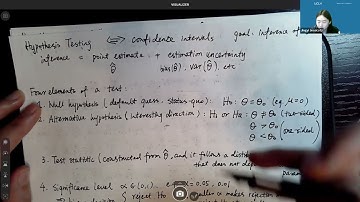 VISUALIZER
UCLA
Hypothesis Testing ⟺ confidence intervals goal: inference of
inference = point estimate + estimation uncertainty
θ̂ bias(θ̂), var(θ̂), etc
Four elements of a test:
1. Null hypothesis (default guess, status quo): H₀: θ = θ₀ (eg. μ=0)
2. Alternative hypothesis (interesting direction): H₁ or Ha: θ ≠ θ₀ (two-sided)
θ > θ₀
θ < θ₀ one-sided
3. Test statistic (constructed from θ̂, and it follows a
that does not
4. Significance level α ∈ (0,1). α = 0.05, 0.01
reject H₀ smaller α makes